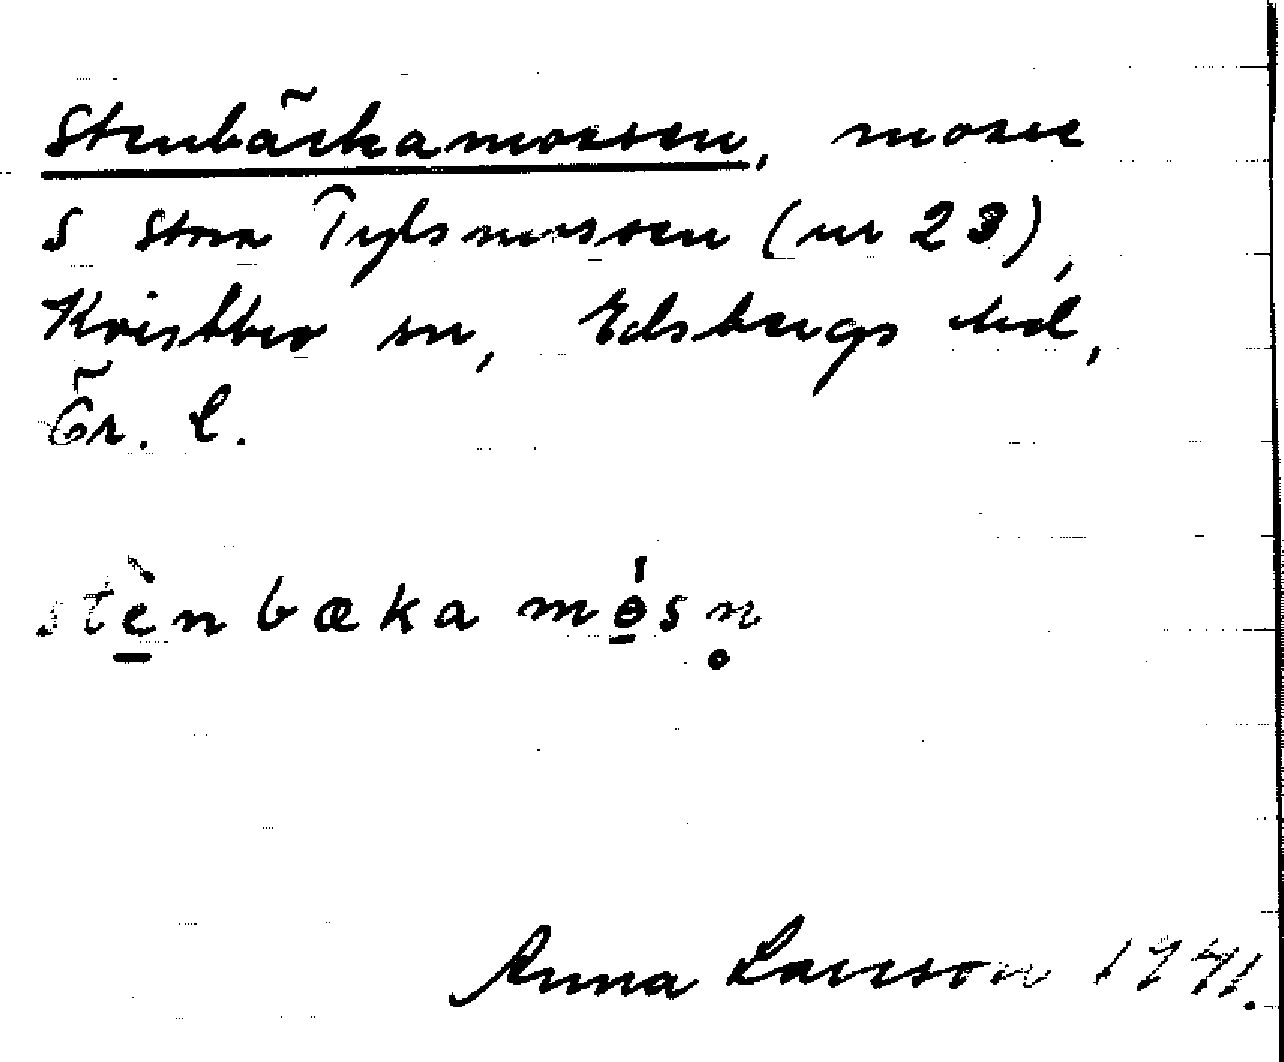 Stenbäckamossen, mosse
S Stora Tylsmossen (nr 23),
Kvistbro sn, Edsbergs hd,
Ör. L.
stènbækamósn̥
Anna Larsson 1941.